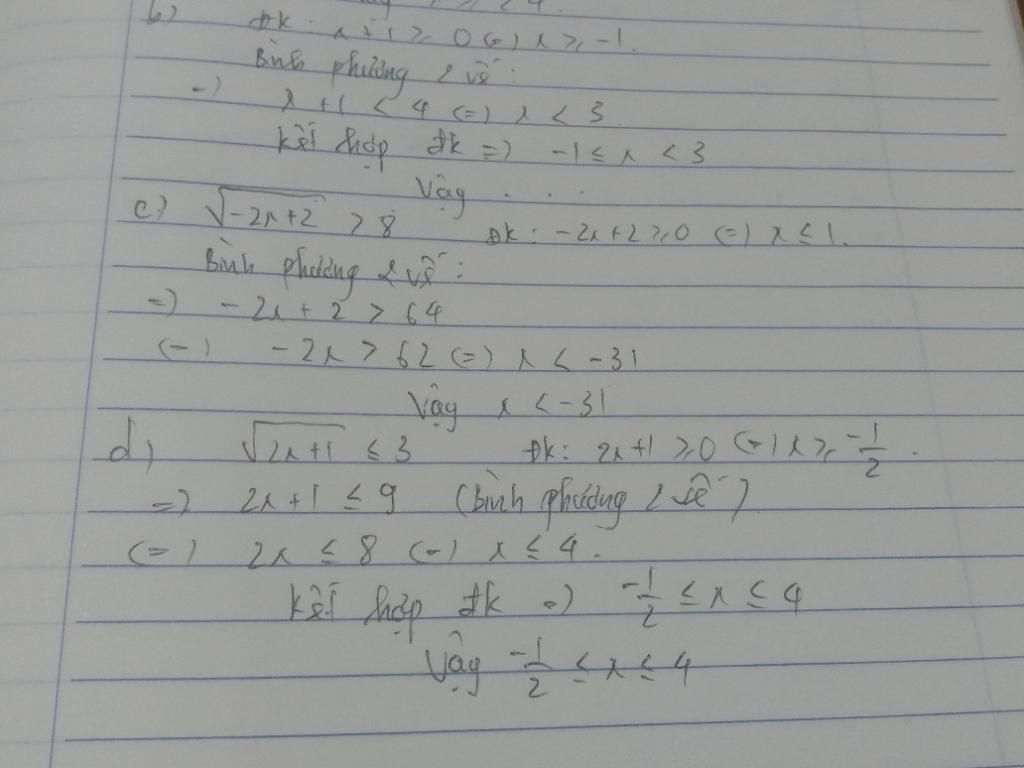 < 4.
b) Đk: x+1 ≥ 0 (=) x ≥ -1.
Bình phương 2 vế:
=) x+1 < 4 (=) x < 3
Kết hợp đk =) -1 ≤ x < 3
Vậy . . .
c) √(-2x+2) > 8 Đk: -2x+2 ≥ 0 (=) x ≤ 1.
Bình phương 2 vế:
=) -2x + 2 > 64
(=) -2x > 62 (=) x < -31
Vậy x < -31
d) √(2x+1) ≤ 3 Đk: 2x+1 ≥ 0 (=) x ≥ -1/2.
=) 2x+1 ≤ 9 (Bình phương 2 vế)
(=) 2x ≤ 8 (=) x ≤ 4.
Kết hợp đk =) -1/2 ≤ x ≤ 4
Vậy -1/2 ≤ x ≤ 4